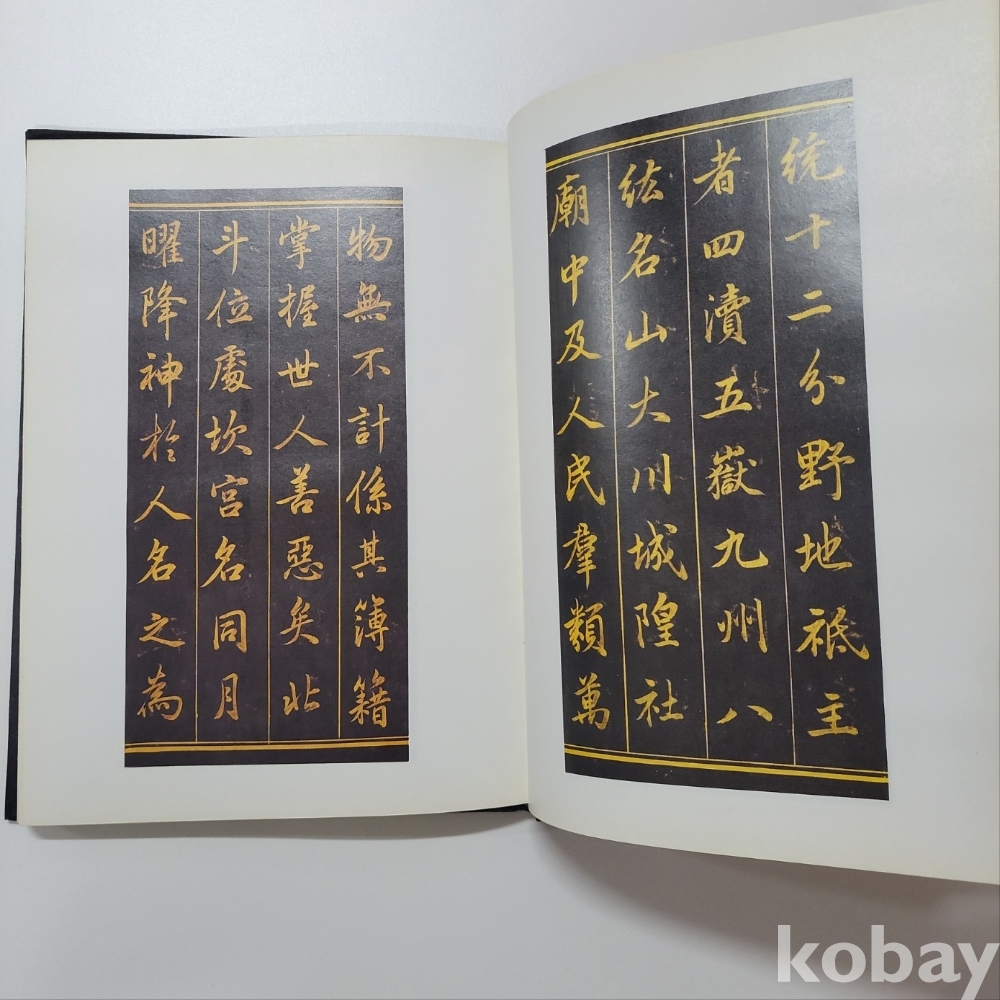 統十二分野地祇主
者四瀆五嶽九州八
紘名山大川城隍社
廟中及人民羣類萬
物無不計係其簿籍
掌握世人善惡矣北
斗位處坎宮名同月
曜降神於人名之為
kobay